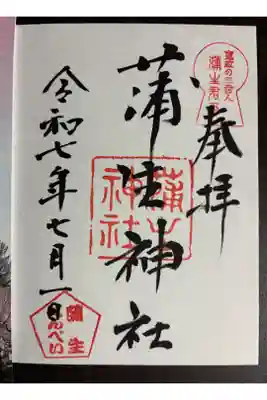 奉拝
寛政の三奇人
蒲生君平
蒲生神社
蒲生神社
令和七年七月一日
蒲生
くんぺい